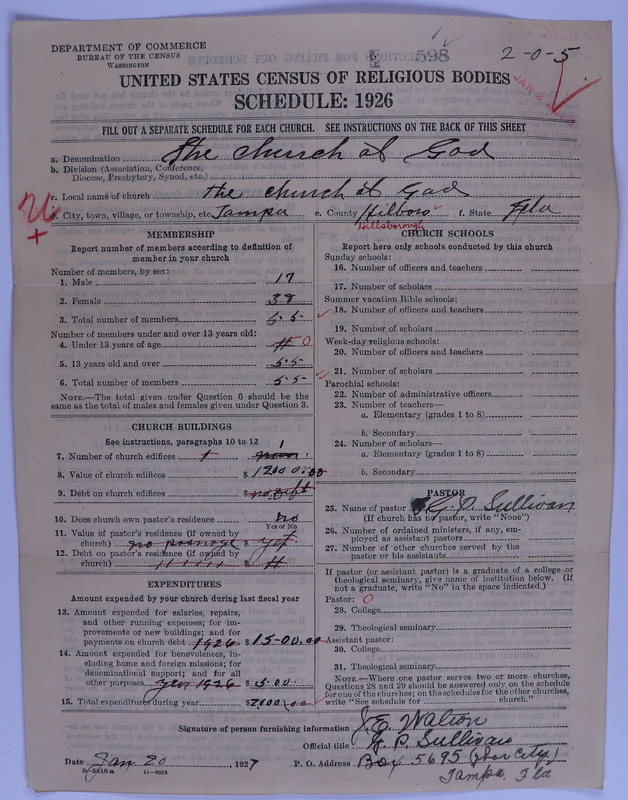 DEPARTMENT OF COMMERCE
BUREAU OF THE CENSUS
WASHINGTON
598
2-0-5
UNITED STATES CENSUS OF RELIGIOUS BODIES
SCHEDULE: 1926
FILL OUT A SEPARATE SCHEDULE FOR EACH CHURCH. SEE INSTRUCTIONS ON THE BACK OF THIS SHEET
a. Denomination The Church of God
b. Division (Association, Conference, Diocese, Presbytery, Synod, etc.)
c. Local name of church The Church of God
d. City, town, village, or township, etc. Tampa e. County Hillboro f. State Fla
Hillsborough
MEMBERSHIP
Report number of members according to definition of member in your church
Number of members, by sex:
1. Male 17
2. Female 38
3. Total number of members 55
Number of members under and over 13 years old:
4. Under 13 years of age 0
5. 13 years old and over 55
6. Total number of members 55
NOTE.—The total given under Question 6 should be the same as the total of males and females given under Question 3.
CHURCH BUILDINGS
See instructions, paragraphs 10 to 12
7. Number of church edifices 1
8. Value of church edifices $ 1200.00
9. Debt on church edifices $
10. Does church own pastor's residence no
Yes or No
11. Value of pastor's residence (if owned by church) $ yet
12. Debt on pastor's residence (if owned by church) $
EXPENDITURES
Amount expended by your church during last fiscal year
13. Amount expended for salaries, repairs, and other running expenses; for improvements or new buildings; and for payments on church debt 1926 $ 1500.00
14. Amount expended for benevolences, including home and foreign missions; for denominational support; and for all other purposes year 1926 $ 500
15. Total expenditures during year $ 2000.00
CHURCH SCHOOLS
Report here only schools conducted by this church
Sunday schools:
16. Number of officers and teachers
17. Number of scholars
Summer vacation Bible schools:
18. Number of officers and teachers
19. Number of scholars
Week-day religious schools:
20. Number of officers and teachers
21. Number of scholars
Parochial schools:
22. Number of administrative officers
23. Number of teachers—
a. Elementary (grades 1 to 8)
b. Secondary
24. Number of scholars—
a. Elementary (grades 1 to 8)
b. Secondary
PASTOR
25. Name of pastor G. P. Sullivan
(If church has no pastor, write "None")
26. Number of ordained ministers, if any, employed as assistant pastors
27. Number of other churches served by the pastor or his assistants
If pastor (or assistant pastor) is a graduate of a college or theological seminary, give name of institution below. (If not a graduate, write "No" in the space indicated.)
Pastor: 0
28. College
29. Theological seminary
Assistant pastor:
30. College
31. Theological seminary
NOTE.—Where one pastor serves two or more churches, Questions 28 and 29 should be answered only on the schedule for one of the churches; on the schedules for the other churches, write "See schedule for church."
Signature of person furnishing information J. E. Walton
Official title G. P. Sullivan
Date Jan 20, 1927 P. O. Address Box 5695 (Ybor City)
Tampa, Fla
8-5518a 11-9054